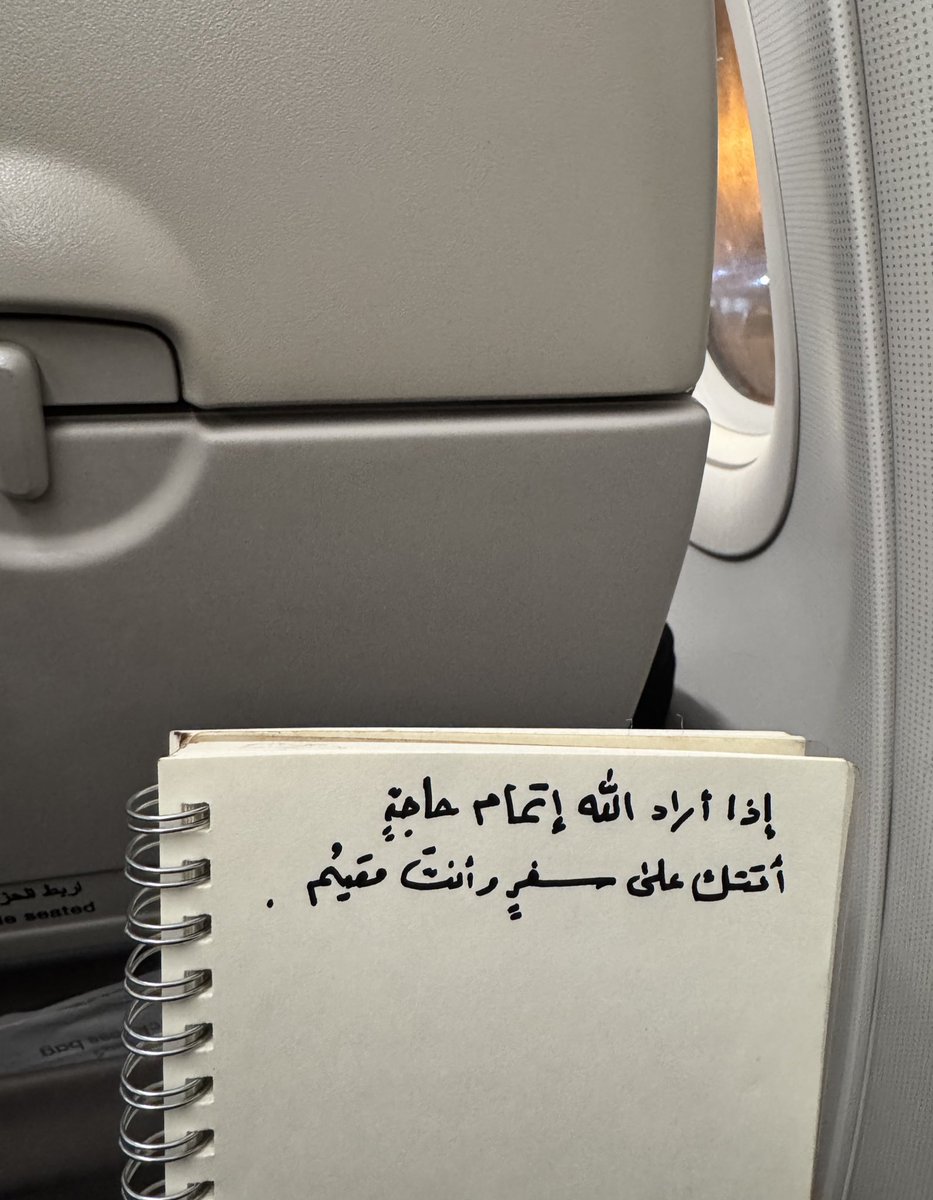 إذا أراد الله إتمام حاجةٍ
أتتك على سفرٍ وأنتَ مقيمُ .
اربط الحز
le seated